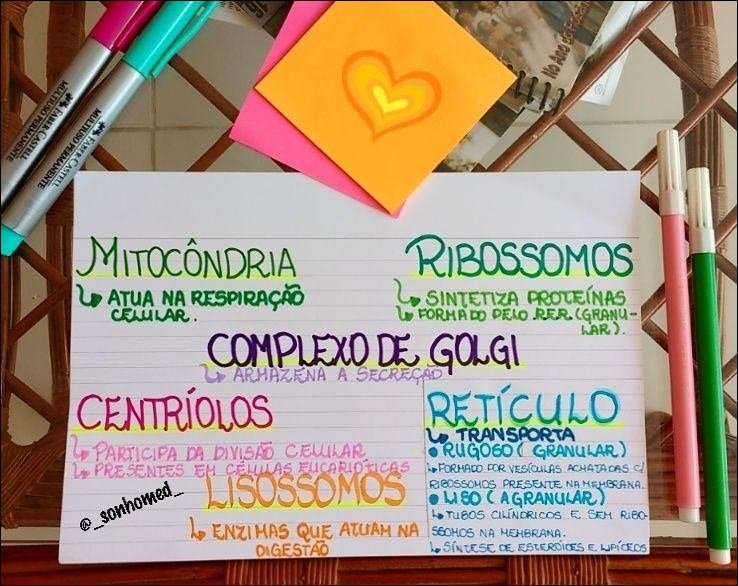 MULTIUSO PERMANENTE
FABER-CASTELL
MULTIUSO PERMANENTE
FABER-CASTELL
No Ano
MITOCÔNDRIA
ATUA NA RESPIRAÇÃO
CELULAR.
RIBOSSOMOS
SINTETIZA PROTEÍNAS
FORMADO PELO RER (GRANU-
LAR).
COMPLEXO DE GOLGI
ARMAZENA A SECREÇÃO
CENTRÍOLOS
PARTICIPA DA DIVISÃO CELULAR
PRESENTES EM CÉLULAS EUCARIÓTICAS
LISOSSOMOS
ENZIMAS QUE ATUAM NA
DIGESTÃO
RETÍCULO
TRANSPORTA
RUGOSO (GRANULAR)
FORMADO POR VESÍCULAS ACHATADAS C/
RIBOSSOMOS PRESENTE NA MEMBRANA.
LISO (AGRANULAR)
TUBOS CILÍNDRICOS E SEM RIBO-
SSOMOS NA MEMBRANA.
SÍNTESE DE ESTERÓIDES E LIPÍDEOS
@_sonhomed_